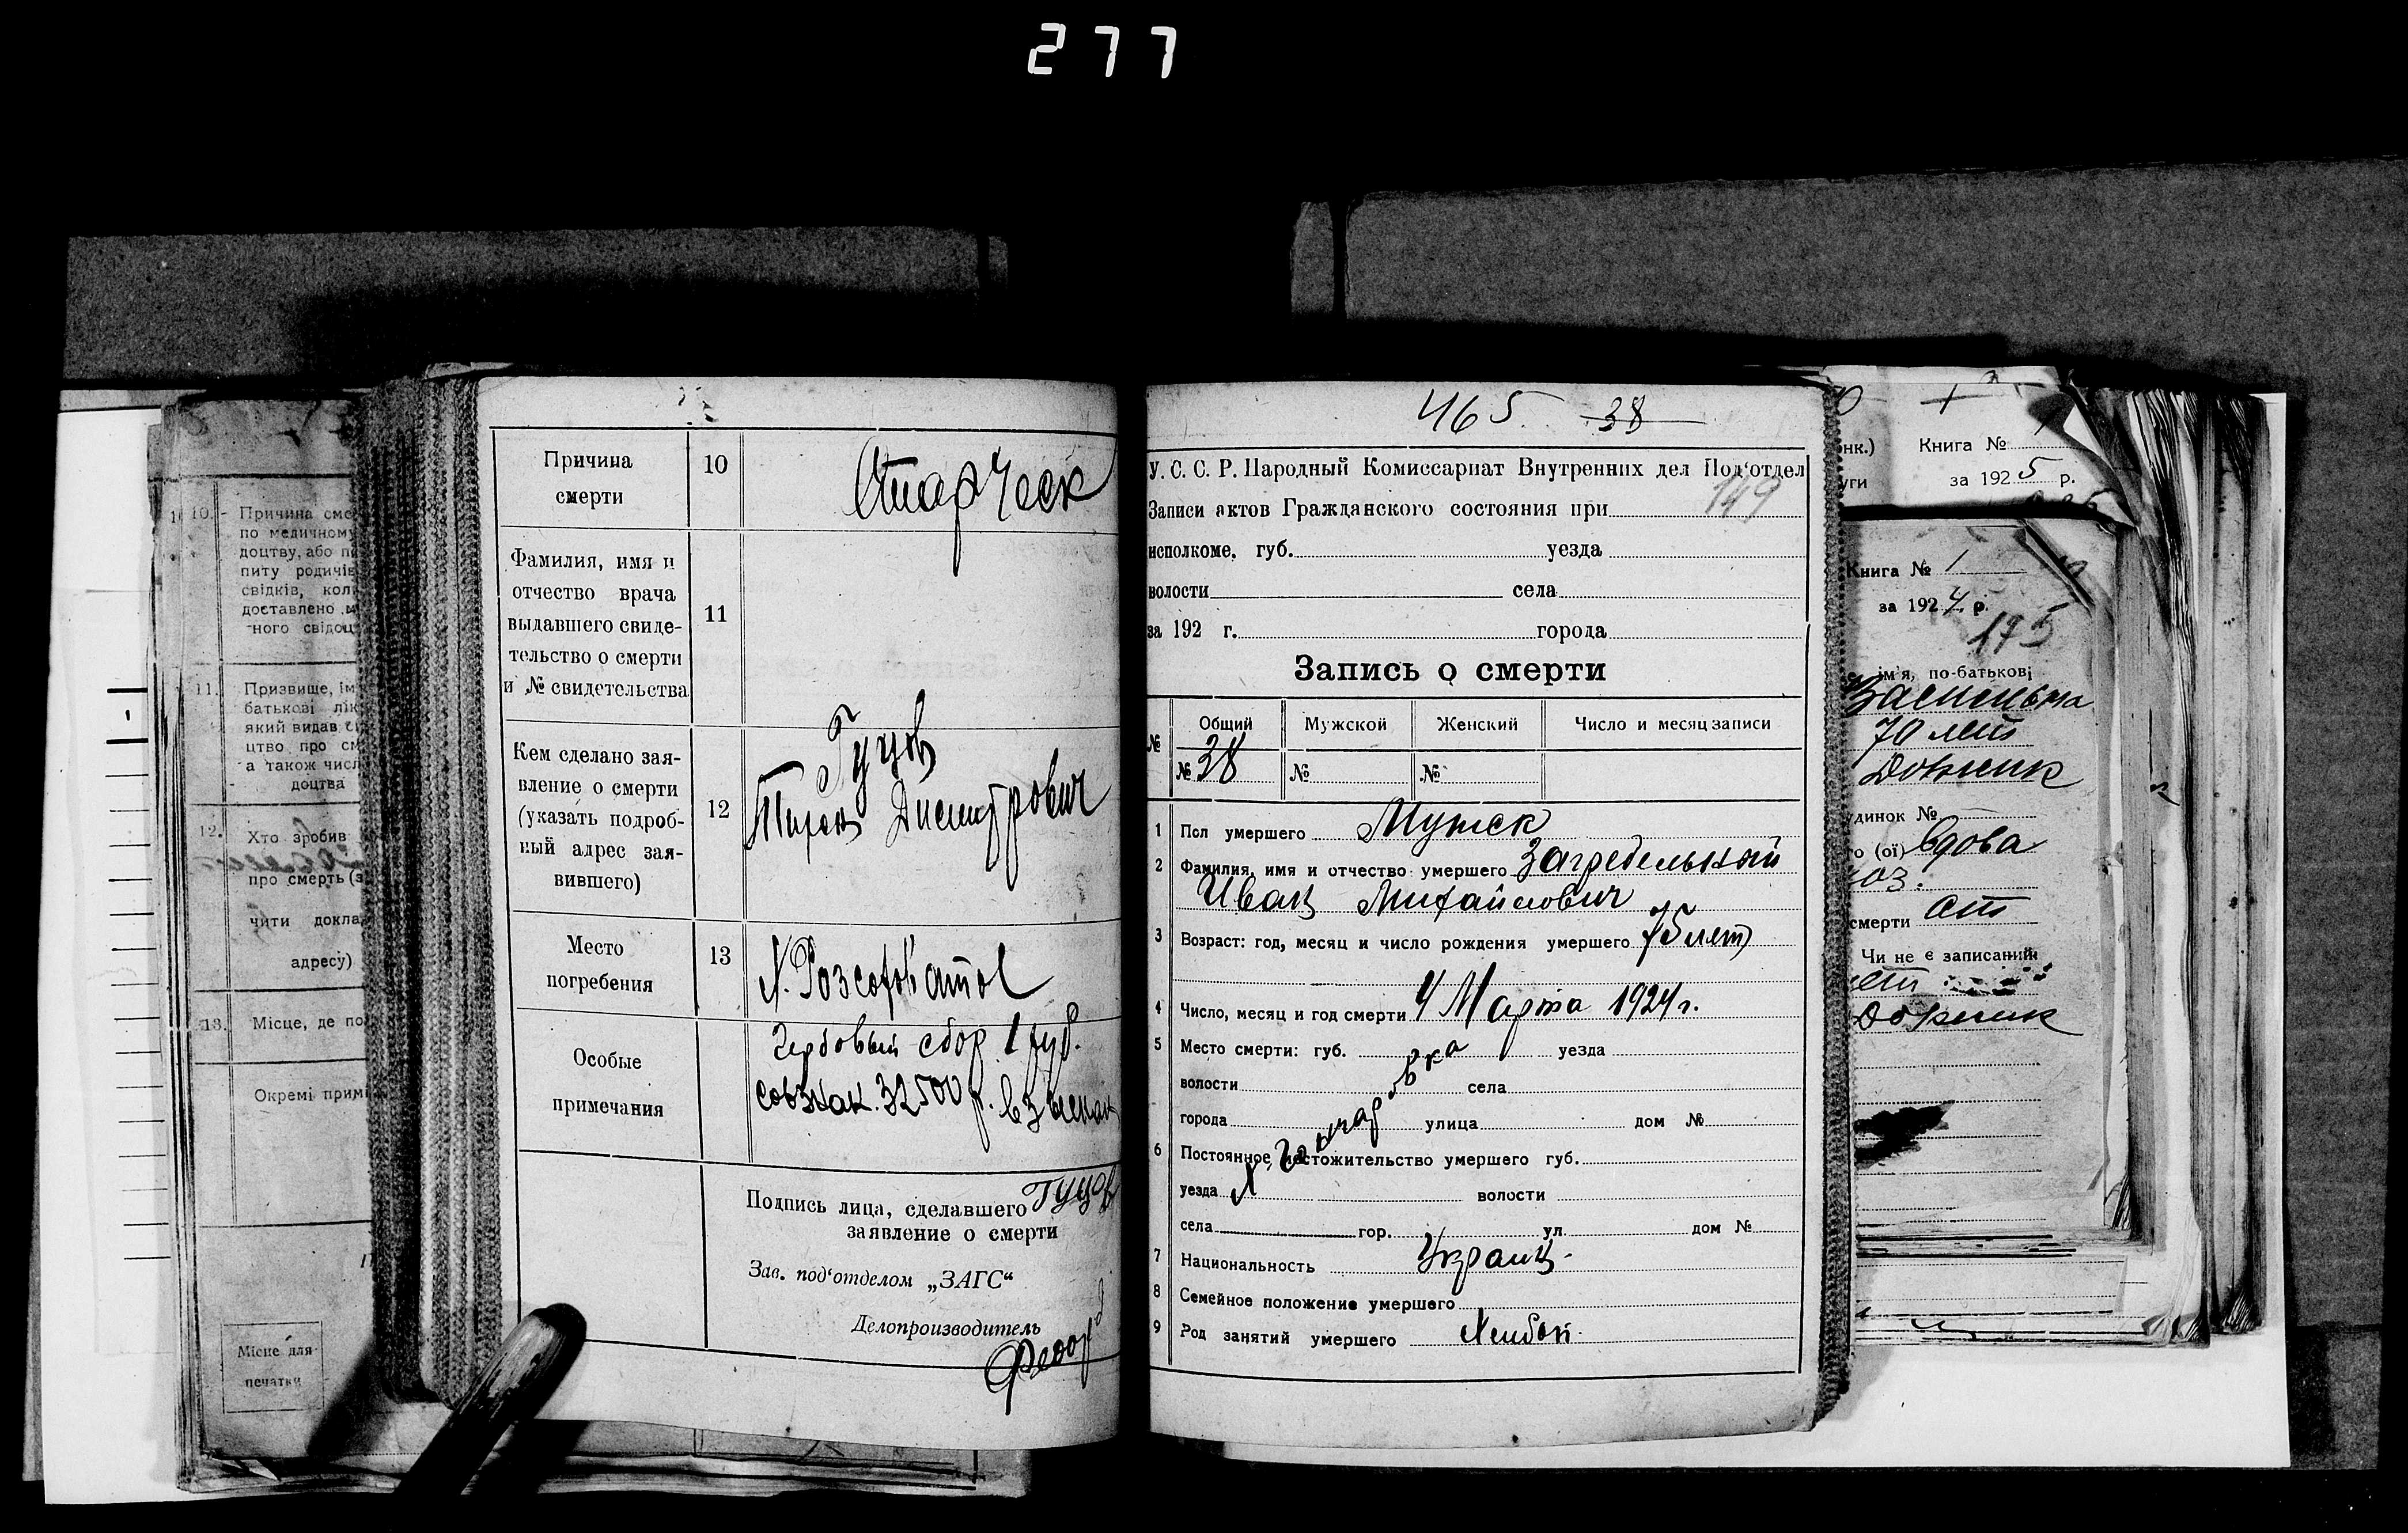 277
10.
Причина
по медичному
доцтву, або
питу родичів
свідків,
доставлено
ного
11.
Призвище,
батькові
який видав
цтво про
а також
доцтва
12.
Хто зробив
про смерть
чити
адресу)
13.
Місце, де
Окремі
Місце для
печатки
Причина
смерти
10
Старческ
Фамилия, имя и
отчество врача
выдавшего свиде-
тельство о смерти
и № свидетельства
11
Кем сделано зая-
вление о смерти
(указать подроб-
ный адрес зая-
вившего)
12
Гуцов
Дмитрович
Место
погребения
13
Особые
примечания
Гербовый сбор 1 руб.
совзнак. 32500 р. взыскан
Подпись лица, сделавшего Гуцов
заявление о смерти
Зав. под‘отделом „ЗАГС“
Делопроизводитель
465 38
У. С. С. Р. Народный Комиссариат Внутренних дел Под‘отдел
149
Записи актов Гражданского состояния при
исполкоме, губ. уезда
волости села
за 192 г. города
Запись о смерти
№ Общий Мужской Женский Число и месяц записи
№ 38 № №
1 Пол умершего Мужск
2 Фамилия, имя и отчество умершего Загребельный
Иван Михайлович
3 Возраст: год, месяц и число рождения умершего 75 лет
4 Число, месяц и год смерти 4 Марта 1924 г.
5 Место смерти: губ. уезда
волости села
города улица дом №
Х. Гончаровка
6 Постоянное местожительство умершего губ.
уезда волости
села гор. ул. дом №
7 Национальность Украин.
8 Семейное положение умершего
9 Род занятий умершего Хлебоп.
Книга №
за 1925 р.
Книга № 1
за 1924 р.
175
ім'я, по-батькові
70 лет
будинок №
(ої) вдова
смерти
Чи не є записаний